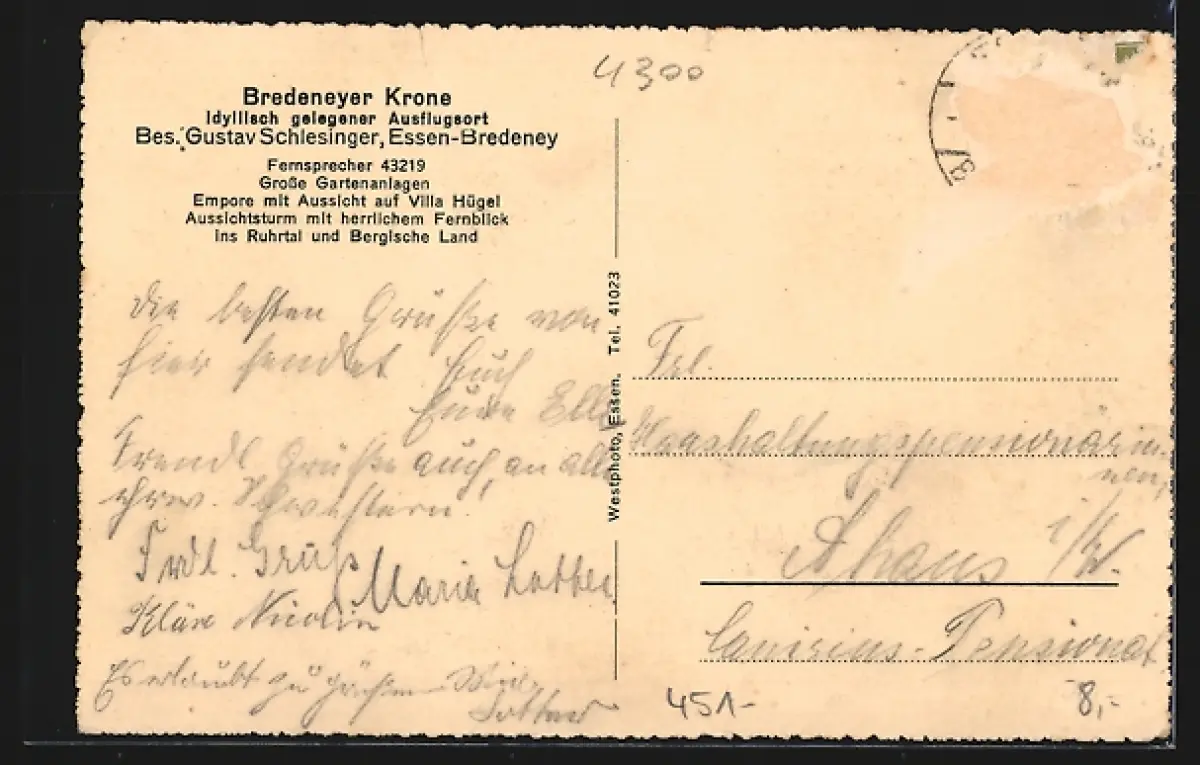 4300
Bredeneyer Krone
Idyllisch gelegener Ausflugsort
Bes. Gustav Schlesinger, Essen-Bredeney
Fernsprecher 43219
Große Gartenanlagen
Empore mit Aussicht auf Villa Hügel
Aussichtsturm mit herrlichem Fernblick
ins Ruhrtal und Bergische Land
Die besten Grüße von
hier sendet Euch
Eure Elli
Freundl. Grüße auch an alle
ehrw. Schwestern.
Frdl. Gruß Maria
Kläre
Es erlaubt zu grüßen
Westphoto, Essen. Tel. 41023
Frl.
Haushaltungspensionärin-
nen,
Ahaus i/W.
Canisius-Pensionat
451-
8,-